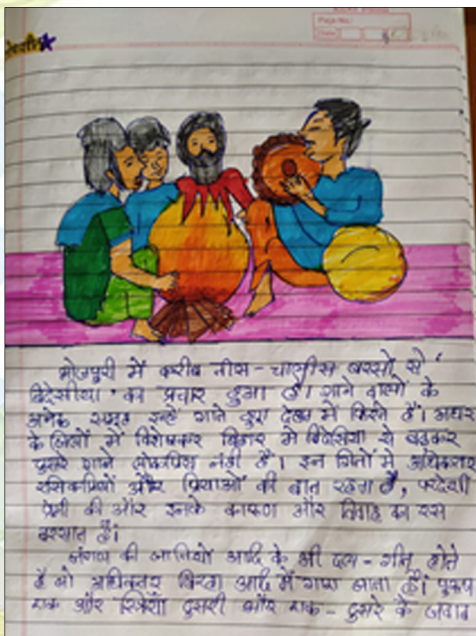 Page No.:
Date
भोजपुरी में करीब तीस - चालीस बरसों से '
बिदेसिया ' का प्रचार हुआ है। गाने वालों के
अनेक समूह इन्हें गाते हुए देहात में फिरते हैं। उधर
के जिलों में विशेषकर बिहार में बिदेसिया से बढ़कर
दूसरे गाने लोकप्रिय नहीं हैं। इन गितों में अधिकतर
रसिकप्रियों और प्रियाओं की बात रहती है, परदेशी
प्रेमी की और इनके करुणा और विरह का रस
बरसता है।
जंगल की जातियों आदि के भी दल - गीत होते
हैं जो अधिकतर बिरहा आदि में गाए जाता हैं। पुरूष
एक और स्त्रियाँ दुसरी और एक - दुसरे के जवाब